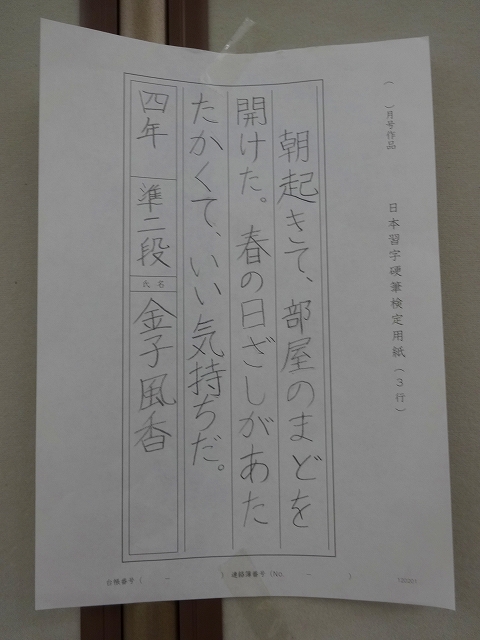 （　）月号作品
日本習字硬筆検定用紙（３行）
朝起きて、部屋のまどを
開けた。春の日ざしがあた
たかくて、いい気持ちだ。
四年 準二段 氏名 金子風香
台帳番号（　－　） 連絡簿番号（No.　－　）